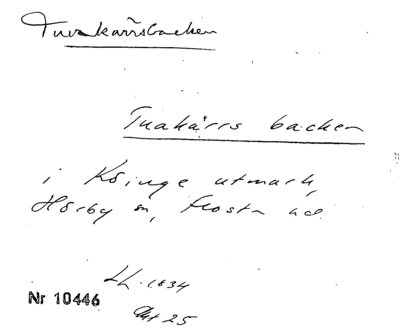 Tuvakärrsbacken
Tuakärrs backen
i Köinge utmark,
Hörby sn, Frosta hd.
LL. 1634
Nr 10446
Akt 25